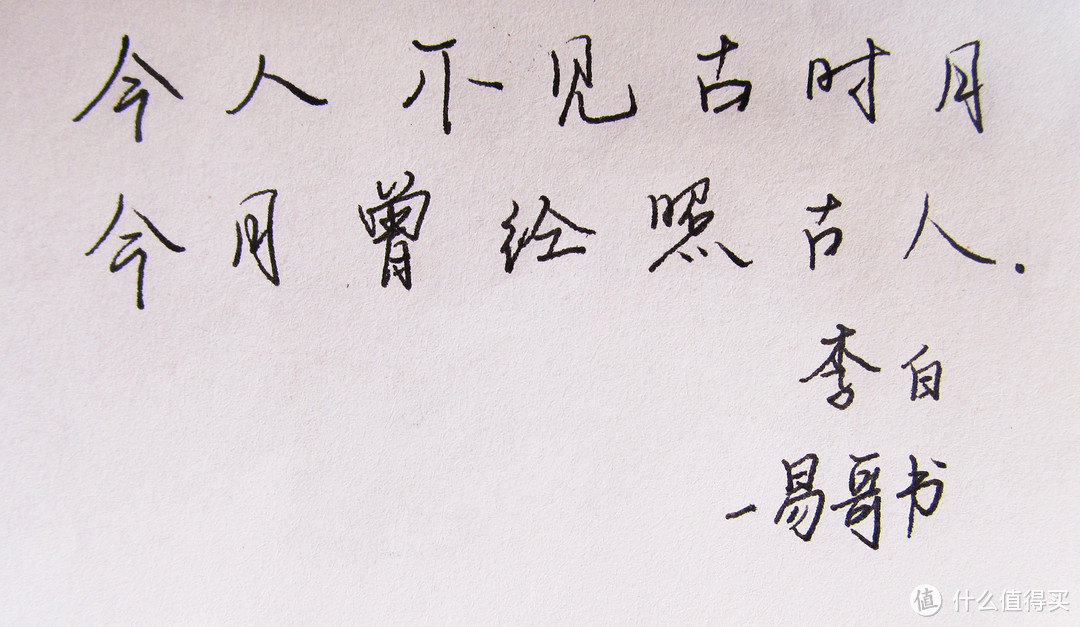 今人不见古时月
今月曾经照古人.
李白
-易哥书
值 什么值得买